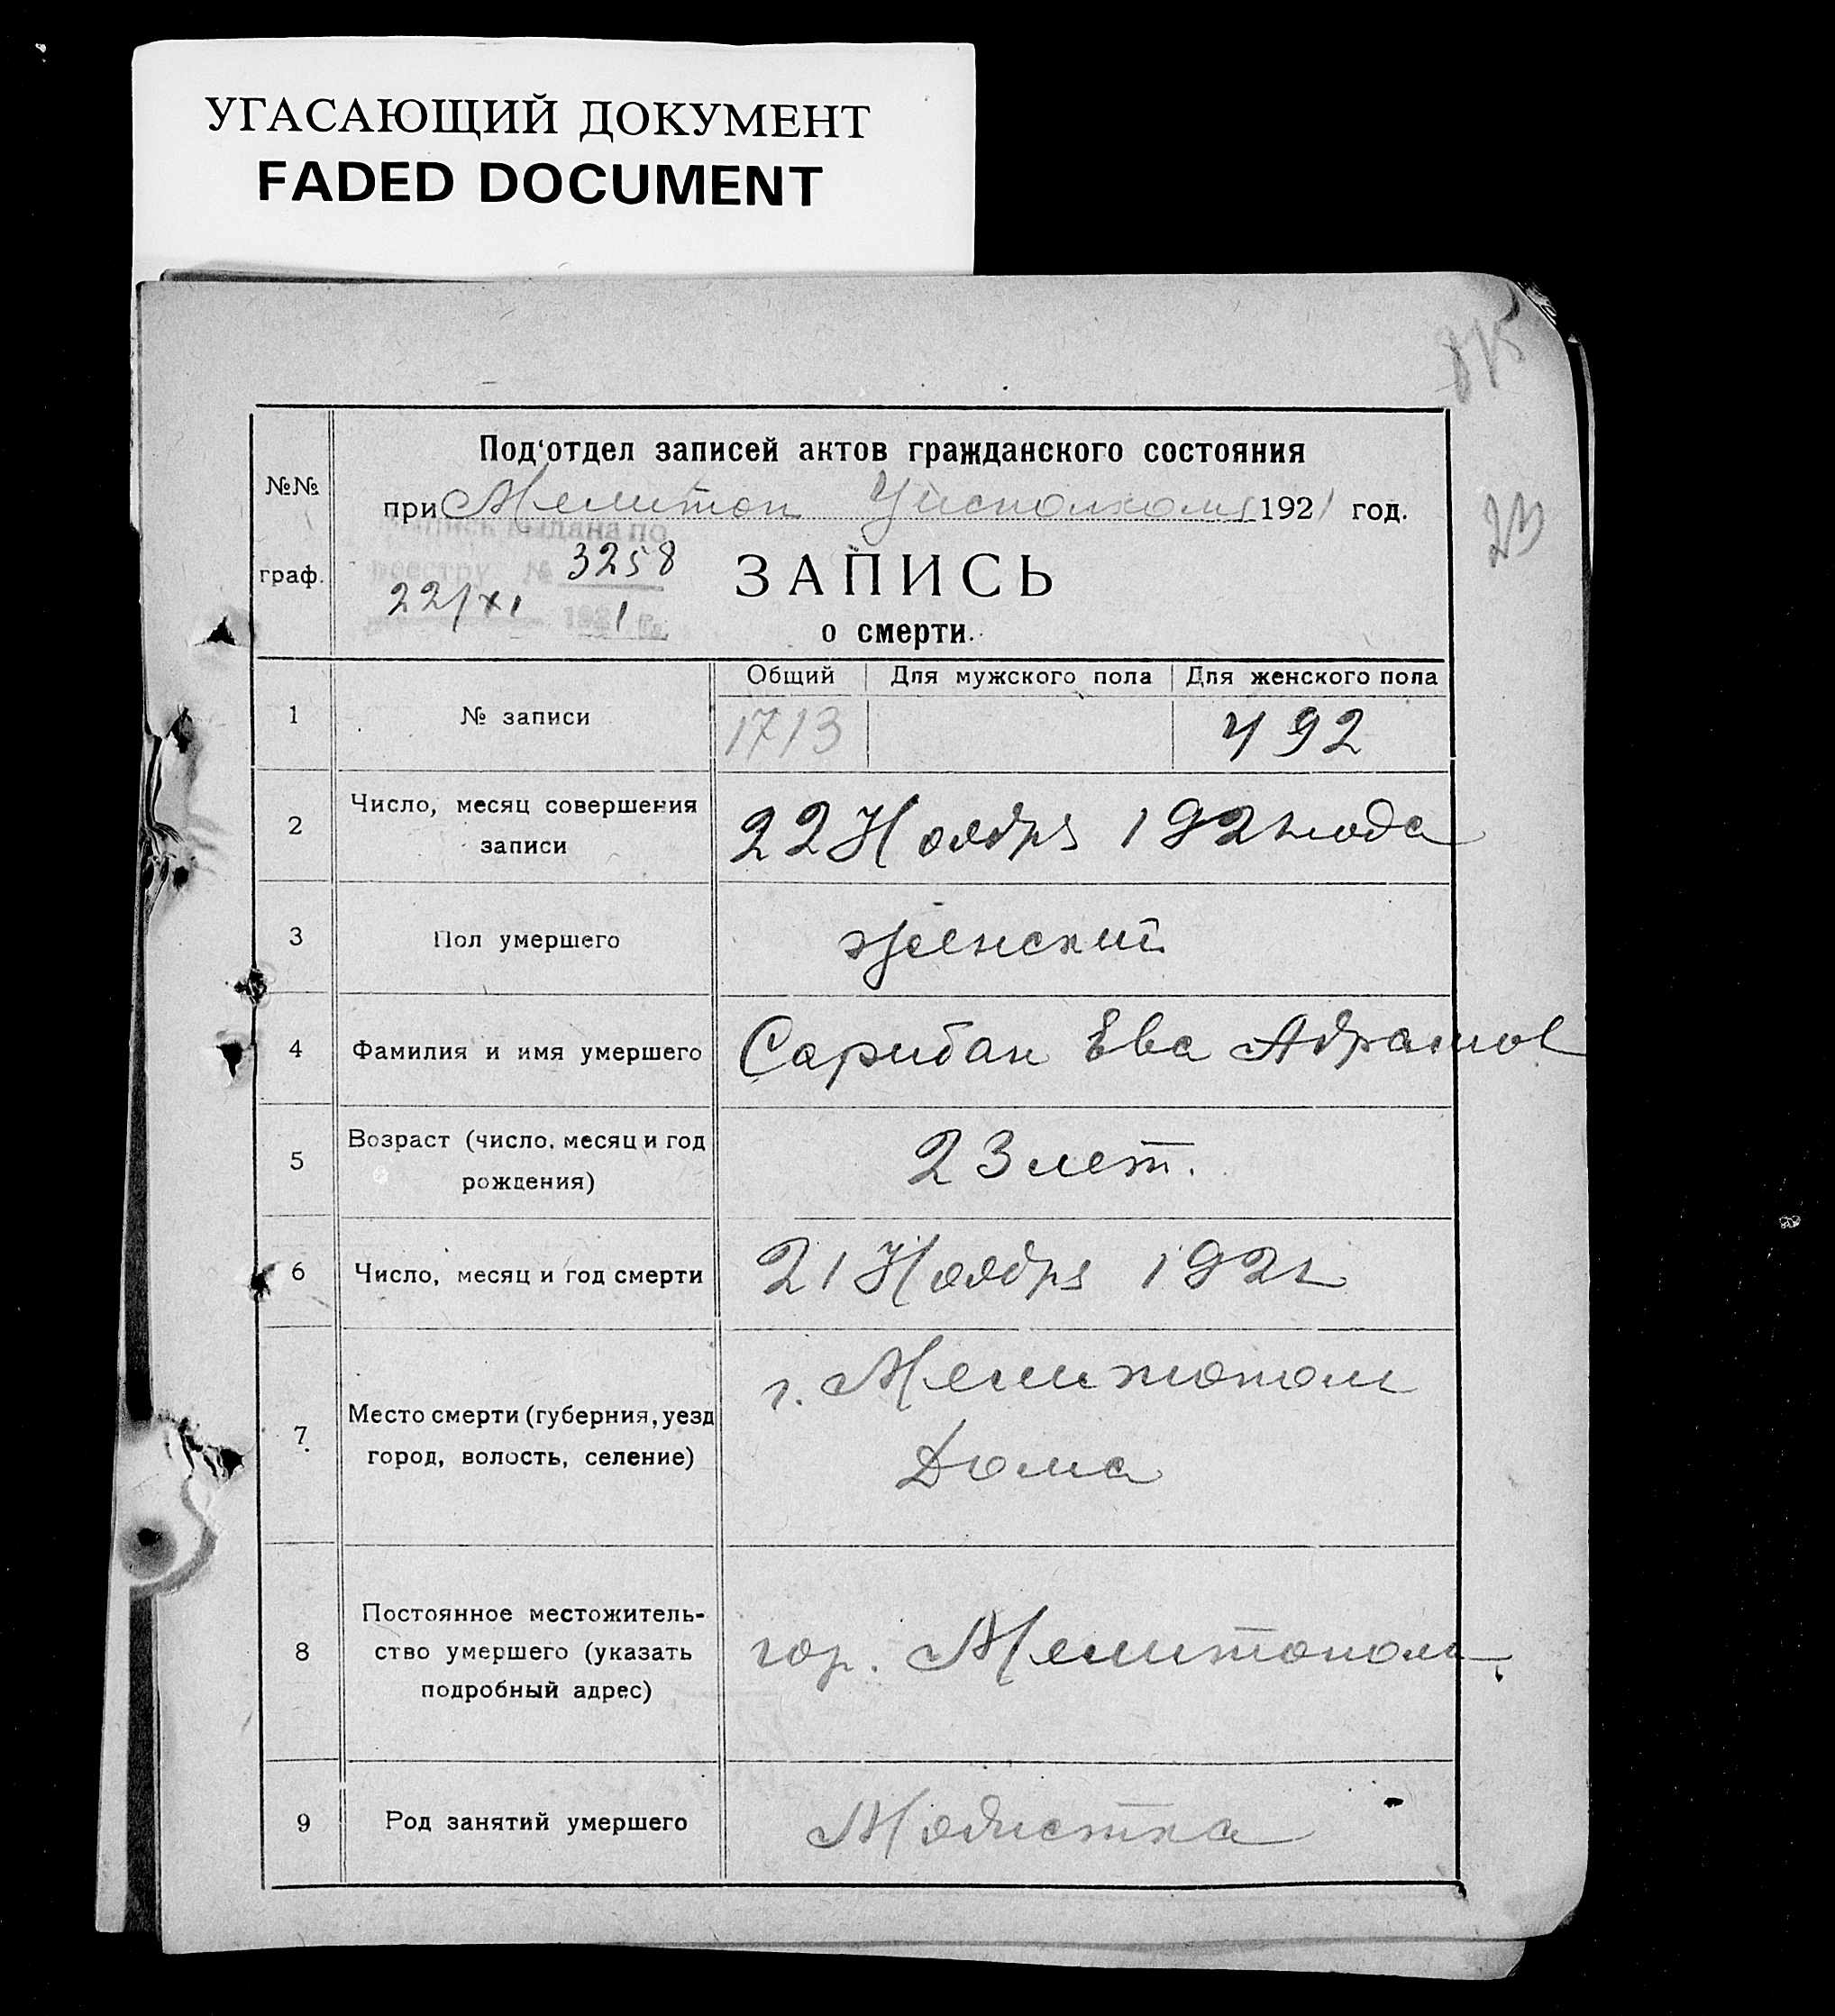 УГАСАЮЩИЙ ДОКУМЕНТ
FADED DOCUMENT
815
23
№№ граф.
Под'отдел записей актов гражданского состояния
при Мелитоп Уисполкома 1921 год.
выдана по
реестру № 3258
22/XI 1921 г.
ЗАПИСЬ
о смерти.
Общий Для мужского пола Для женского пола
1 № записи 1713 492
2 Число, месяц совершения
записи
22 Ноября 1921 года
3 Пол умершего женский
4 Фамилия и имя умершего Сарибан Ева Абрамов
5 Возраст (число, месяц и год
рождения)
23 лет.
6 Число, месяц и год смерти 21 Ноября 1921
7 Место смерти (губерния, уезд
город, волость, селение)
г. Мелитополь
Дома
8 Постоянное местожитель-
ство умершего (указать
подробный адрес)
гор. Мелитополь
9 Род занятий умершего Модистка